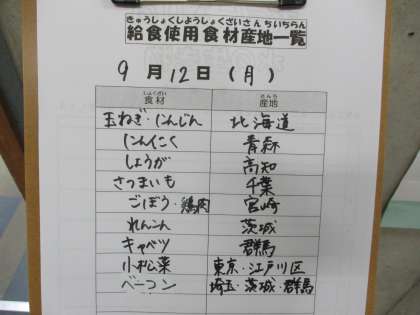 きゅうしょくしようしょくざいさんちいちらん
給食使用食材産地一覧
9月12日(月)
しょくざい さんち
食材 産地
玉ねぎ・にんじん 北海道
にんにく 青森
しょうが 高知
さつまいも 千葉
ごぼう・鶏肉 宮崎
れんこん 茨城
キャベツ 群馬
小松菜 東京・江戸川区
ベーコン 埼玉・茨城・群馬